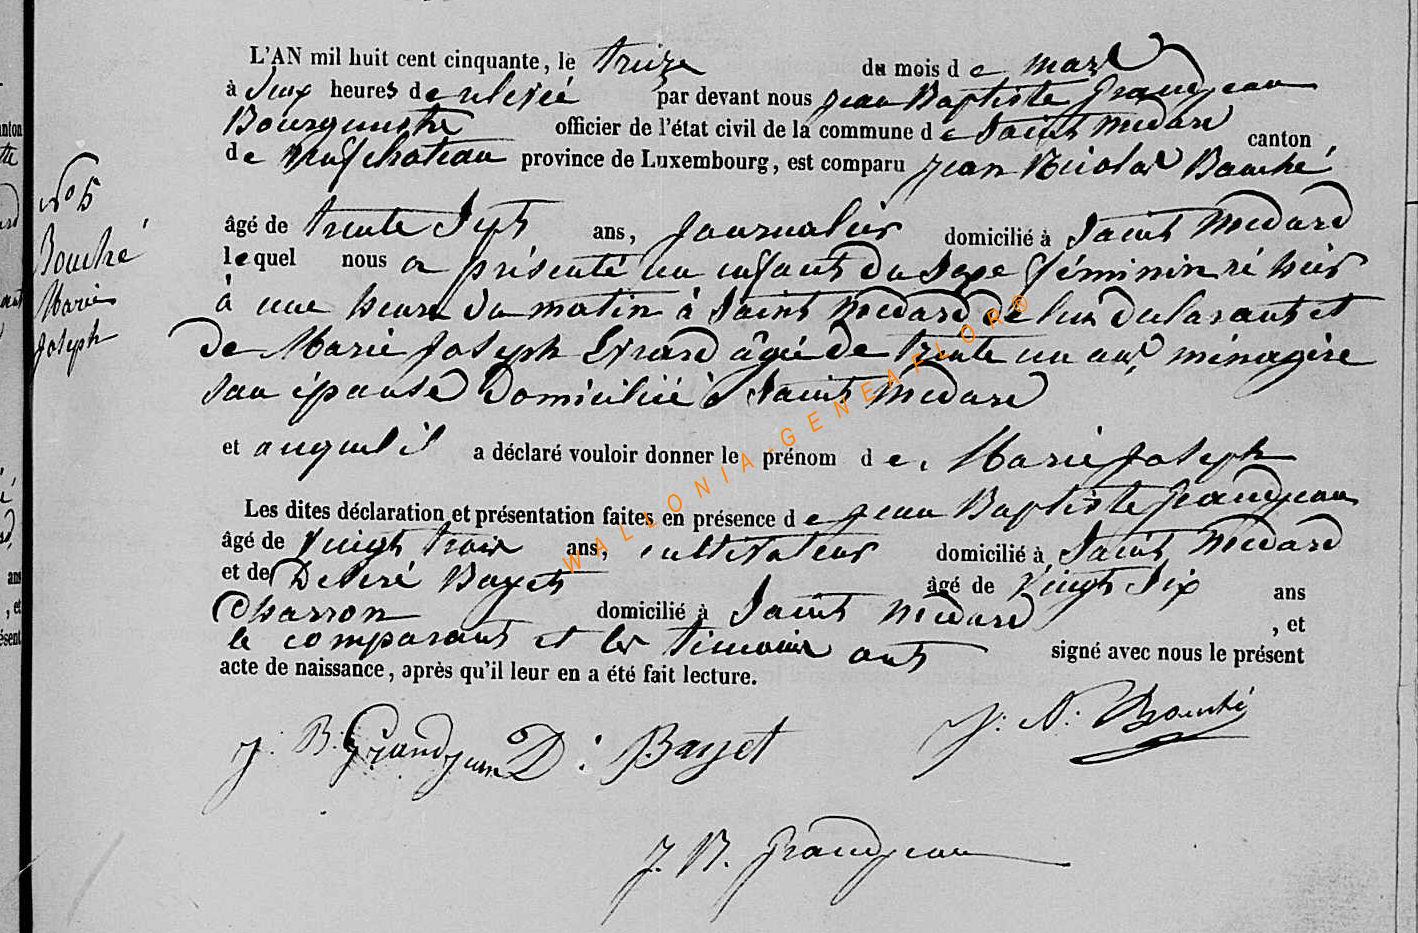 L'AN mil huit cent cinquante, le treize du mois de mars
à deux heures de relevée par devant nous Jean Baptiste Grandjean
Bourgmestre officier de l'état civil de la commune de Saint Medard canton
de Neufchateau province de Luxembourg, est comparu Jean Nicolas Bouché
No 5
Bouché
Marie
Joseph
âgé de trente sept ans, Journalier domicilié à Saint Medard
lequel nous a présenté un enfant du sexe féminin né hier
à une heure du matin à Saint Medard de lui declarant et
de Marie Joseph Evrard âgée de trente un ans, ménagère
son épouse domiciliée à Saint Medard
et auquel il a déclaré vouloir donner le prénom de, Marie Joseph
Les dites déclaration et présentation faites en présence de Jean Baptiste Grandjean
âgé de vingt trois ans, cultivateur domicilié à Saint Medard
et de Desiré Bayet âgé de vingt six ans
Charron domicilié à Saint Medard, et
le comparant et les témoins ont signé avec nous le présent
acte de naissance, après qu'il leur en a été fait lecture.
J. B. Grandjean D. Bayet J. N. Bouché
J. B. Grandjean
WALLONIA-GENEAFLOR®